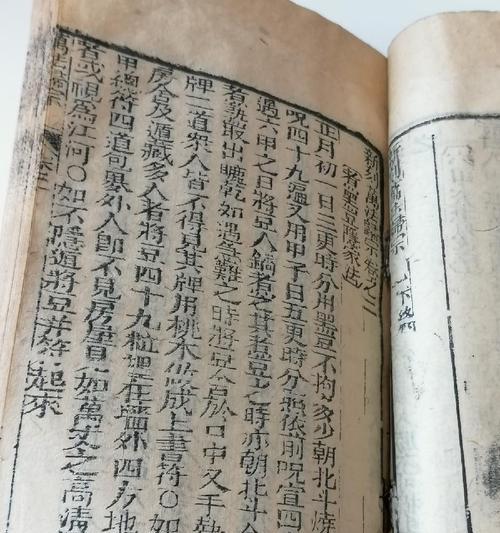 新刻萬法歸宗卷之二
煮黑豆隱家法
正月初一日三更時分用黑豆不拘多少朝北斗燒
咒四十九遍又用甲子日五更時分照依前咒宣四
遇六甲之日將豆入鍋者煮其者豆之時亦朝北斗
者就取出曬乾如遇急難之時將豆含於口中又手執
牌二道眾人皆不得見其牌用桃木做成上書符〇如
房舍及遁藏多人者將豆四十九粒埋在墻外四方地
甲綱符四道可界外人即不見房屋見如萬丈之高清
者或視為江河〇如不隱遁將豆并符起來
萬法歸宗